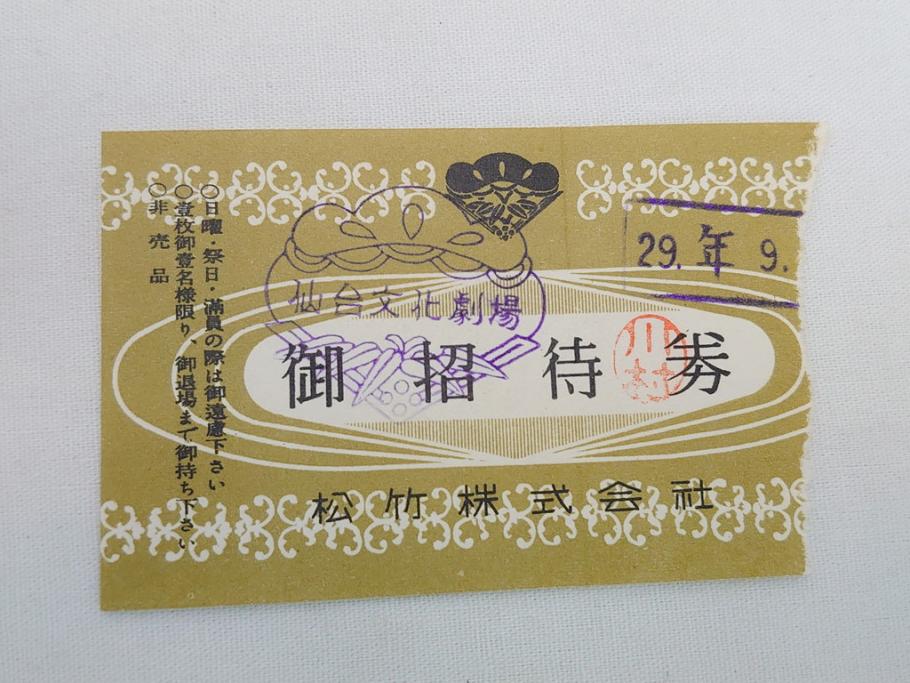 ○日曜・祭日・満員の際は御遠慮下さい
○壹枚御壹名様限り、御退場まで御持ち下さい
○非売品
29.年 9.
仙台文化劇場
御招待券
川村
松竹株式会社